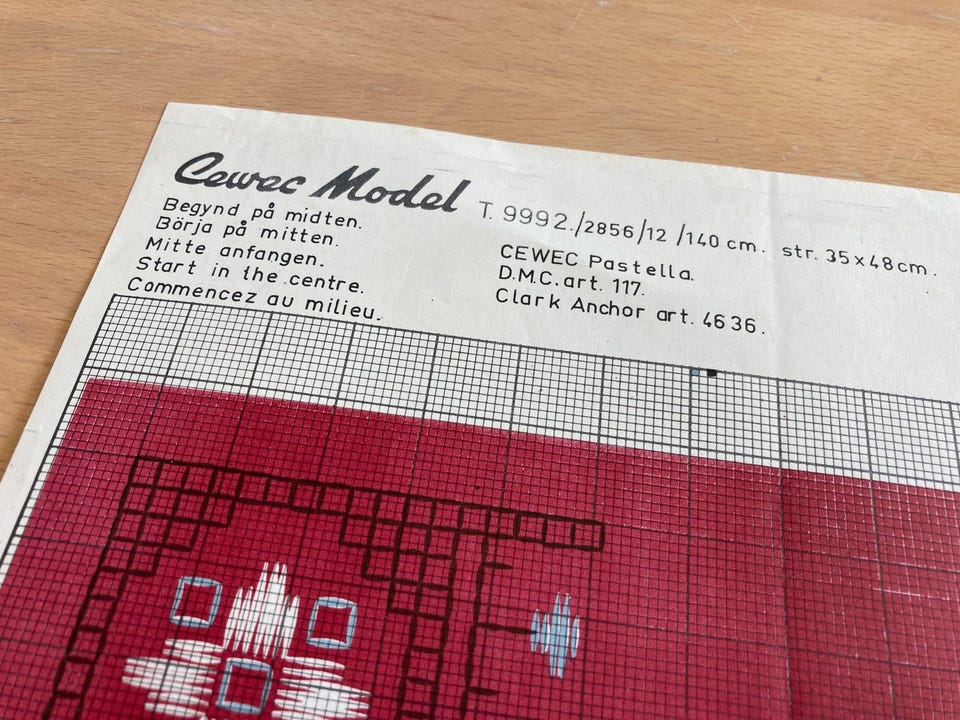 Cewec Model T. 9992./2856/12 /140 cm. str. 35x48cm.
Begynd på midten.
Börja på mitten.
Mitte anfangen.
Start in the centre.
Commencez au milieu.
CEWEC Pastella.
D.M.C. art. 117.
Clark Anchor art. 4636.